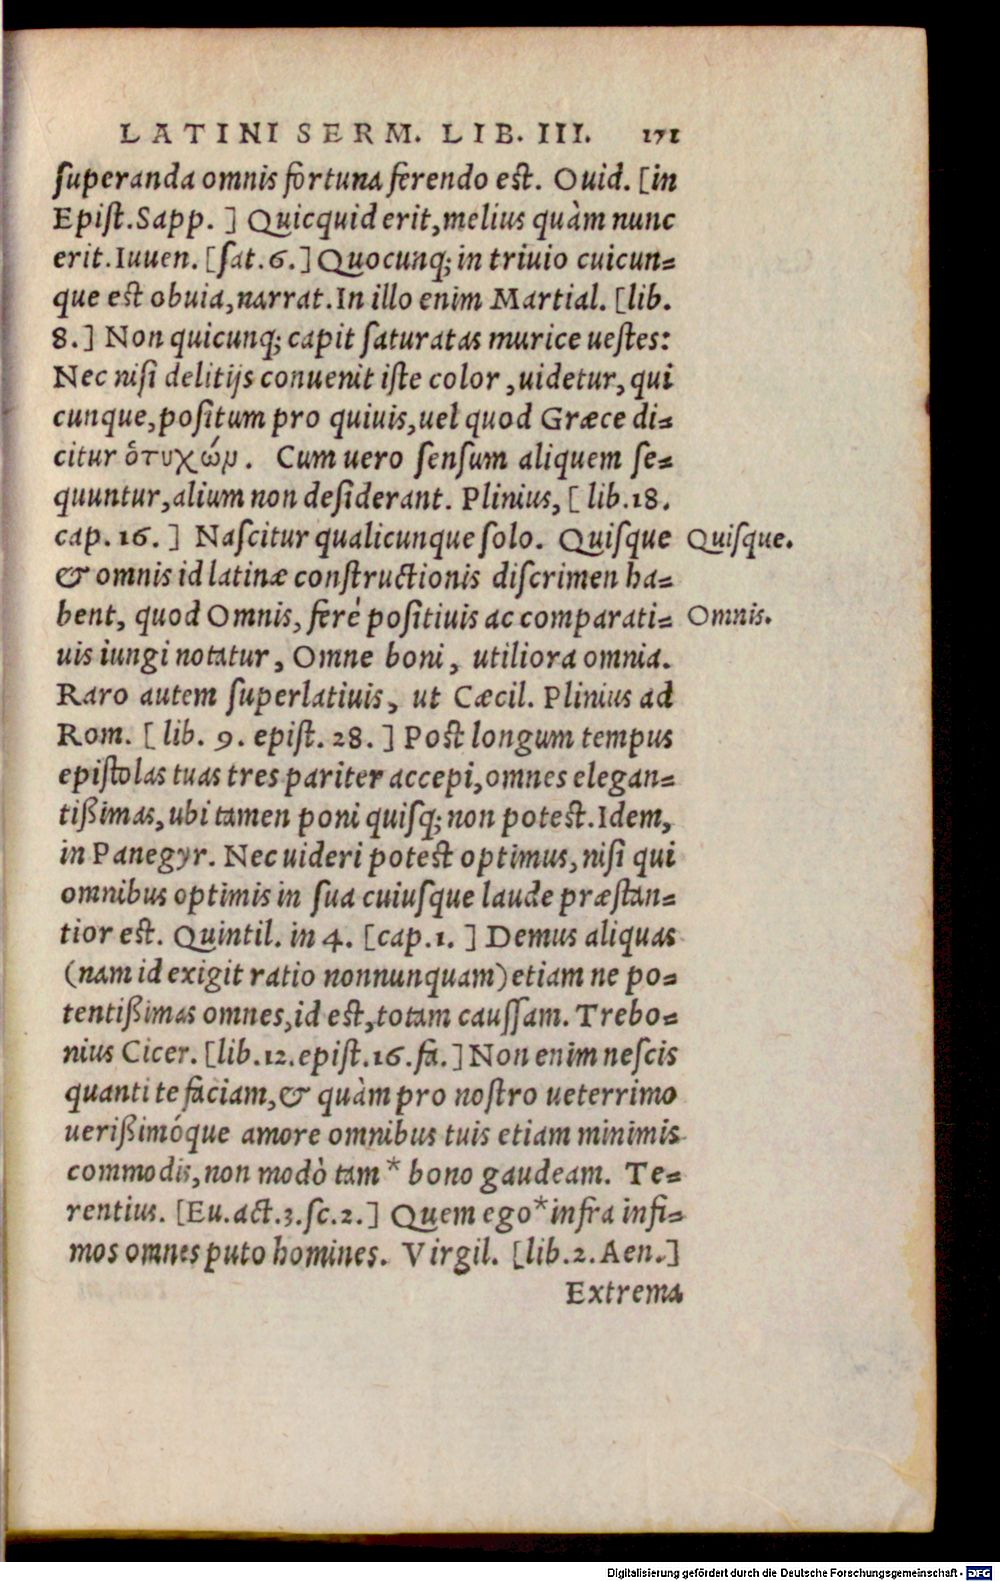 LATINI SERM. LIB. III. 171
superanda omnis fortuna ferendo est. Ouid. [in
Epist. Sapp. ] Quicquid erit, melius quàm nunc
erit. Iuuen. [sat. 6.] Quocunq; in triuio cuicun=
que est obuia, narrat. In illo enim Martial. [lib.
8.] Non quicunq; capit saturatas murice uestes:
Nec nisi delitijs conuenit iste color, uidetur, qui
cunque, positum pro quiuis, uel quod Græce di=
citur ὁτυχών. Cum uero sensum aliquem se=
quuntur, alium non desiderant. Plinius, [lib. 18.
cap. 16. ] Nascitur qualicunque solo. Quisque
Quisque.
& omnis id latinæ constructionis discrimen ha=
bent, quod Omnis, ferè positiuis ac comparati=
Omnis.
uis iungi notatur, Omne boni, utiliora omnia.
Raro autem superlatiuis, ut Cæcil. Plinius ad
Rom. [lib. 9. epist. 28. ] Post longum tempus
epistolas tuas tres pariter accepi, omnes elegan=
tißimas, ubi tamen poni quisq; non potest. Idem,
in Panegyr. Nec uideri potest optimus, nisi qui
omnibus optimis in sua cuiusque laude præstan=
tior est. Quintil. in 4. [cap. 1. ] Demus aliquas
(nam id exigit ratio nonnunquam) etiam ne po=
tentißimas omnes, id est, totam caussam. Trebo=
nius Cicer. [lib. 12. epist. 16. fa.] Non enim nescis
quanti te faciam, & quàm pro nostro ueterrimo
uerißimóque amore omnibus tuis etiam minimis
commodis, non modò tam* bono gaudeam. Te=
rentius. [Eu. act. 3. sc. 2.] Quem ego* infra infi=
mos omnes puto homines. Virgil. [lib. 2. Aen.]
Extrema
Digitalisierung gefördert durch die Deutsche Forschungsgemeinschaft - DFG